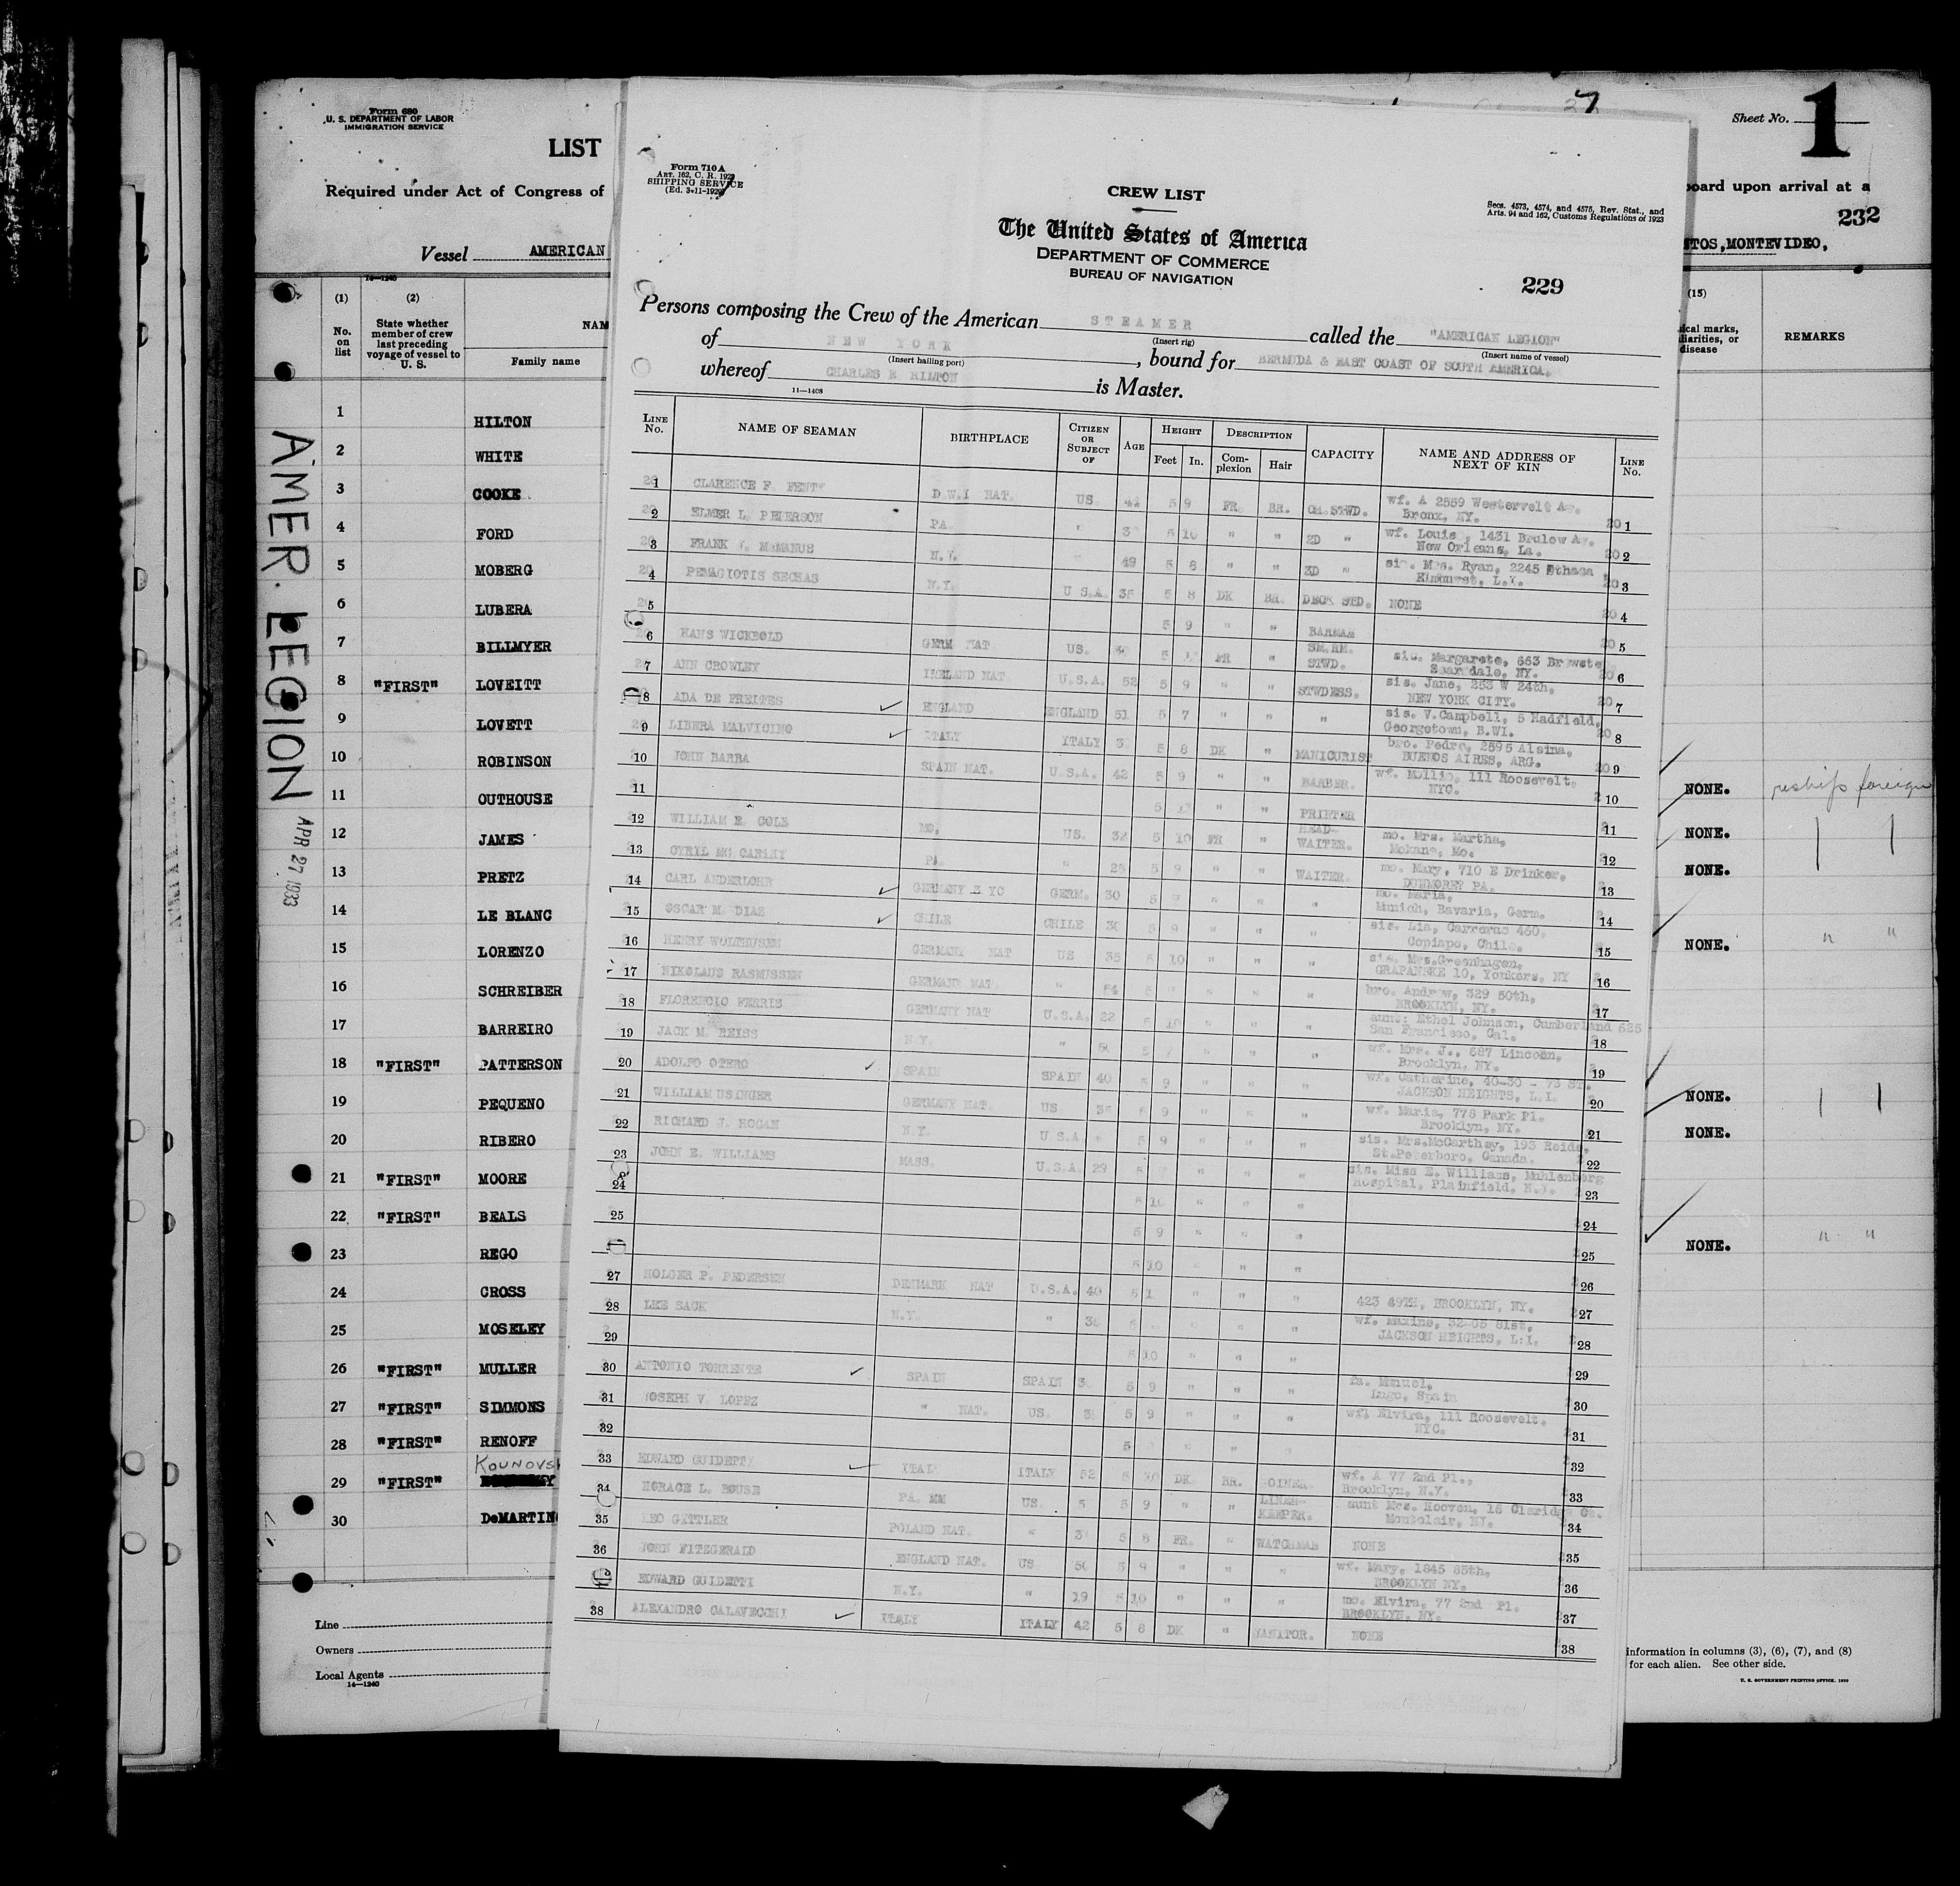 Form 680
U. S. DEPARTMENT OF LABOR
IMMIGRATION SERVICE
LIST
Required under Act of Congress of
Vessel AMERICAN
14—1240
(1) (2)
No. on list
State whether member of crew last preceding voyage of vessel to U. S.
NAM
Family name
1 HILTON
2 WHITE
3 COOKE
4 FORD
5 MOBERG
6 LUBERA
7 BILLMYER
8 "FIRST" LOVEITT
9 LOVETT
10 ROBINSON
11 OUTHOUSE
12 JAMES
13 PRETZ
14 LE BLANC
15 LORENZO
16 SCHREIBER
17 BARREIRO
18 "FIRST" PATTERSON
19 PEQUENO
20 RIBERO
21 "FIRST" MOORE
22 "FIRST" BEALS
23 REGO
24 CROSS
25 MOSELEY
26 "FIRST" MULLER
27 "FIRST" SIMMONS
28 "FIRST" RENOFF
KOUNOVS
29 "FIRST"
30 DeMARTIN
Line
Owners
Local Agents
14—1240
AMER. LEGION APR 27 1933
7
Form 710 A
ART. 162, C. R. 1923
SHIPPING SERVICE
(Ed. 3-11-1929)
CREW LIST
Secs. 4573, 4574, and 4575, Rev. Stat., and
Arts. 94 and 162, Customs Regulations of 1923
The United States of America
DEPARTMENT OF COMMERCE
BUREAU OF NAVIGATION
229
Persons composing the Crew of the American STEAMER called the "AMERICAN LEGION"
(Insert rig) (Insert name of vessel)
of NEW YORK, bound for BERMUDA & EAST COAST OF SOUTH AMERICA.
(Insert hailing port)
whereof CHARLES E HILTON is Master.
11—1408
LINE No. NAME OF SEAMAN BIRTHPLACE CITIZEN OR SUBJECT OF AGE HEIGHT Feet In. DESCRIPTION Complexion Hair CAPACITY NAME AND ADDRESS OF NEXT OF KIN LINE No.
1 CLARENCE F. FENTY D.W.I NAT. US. 5 9 FR. BR. CH. STWD. wf. A 2559 Westervelt Av. Bronx, NY. 1
2 ELMER L. PETERSON PA. " 5 10 " " 2D " wf. Louis, 1431 Brulow Av. New Orleans, La. 2
3 FRANK J. McMANUS N.Y. " 49 5 8 " " 3D " sis. Mrs. Ryan, 2245 Ithaca Elmhurst, L.I. 3
4 PENAGIOTIS SECHAS N.Y. U.S.A. 35 5 8 DK BR. DECK STD. NONE 4
5 5 9 " " BARMAN 5
6 HANS WICKBOLD GERM NAT US. 5 FR " SM.RM. STWD. sis. Margarete, 663 Brewste Scarsdale, NY. 6
7 ANN CROWLEY IRELAND NAT. U.S.A. 52 5 9 " " STWDESS. sis. Jane, 253 W 24th, NEW YORK CITY. 7
8 ADA DE FREITES ENGLAND ENGLAND 51 5 7 " " " sis. V.Campbell, 5 Hadfield, Georgetown, B.WI. 8
9 LIBERA MALVICINO ITALY ITALY 5 8 DK " MANICURIST bro. Pedro, 2595 Alsina, BUENOS AIRES, ARG. 9
10 JOHN BARRA SPAIN NAT. U.S.A. 42 5 9 " " BARBER. wf. Mollie, 111 Roosevelt, NYC. 10
11 5 " " PRINTER 11
12 WILLIAM E. COLE MD. US. 32 5 10 FR " HEAD-WAITER. mo. Mrs. Martha, Mokane, Mo. 12
13 CYRIL MC CARTHY PA. " 25 5 9 " " WAITER. mo. Mary, 710 E Drinker, DUNMORE? PA. 13
14 CARL ANDERLOHR GERMANY GERM. 30 5 " " " mo. Maria, Munich, Bavaria, Germ. 14
15 OSCAR M. DIAZ CHILE CHILE 5 9 " " " sis. Lia, Carreras 460, Copiapo, Chile. 15
16 HENRY WOLTHUSEN GERMANY NAT US 35 5 10 " " " sis. Mrs.Greenhagen, GRAPANSKE 10, Yonkers, NY 16
17 NIKOLAUS RASMUSSEN GERMANY NAT. " 5 " " " bro. Andrew, 329 50th, BROOKLYN, NY. 17
18 FLORENCIO FERRIS GERMANY NAT U.S.A. 22 5 10 " " " aunt: Ethel Johnson, Cumberland 625 San Francisco, Cal. 18
19 JACK M. REISS N.Y. " 5 " " " wf. Mrs. J., 687 Lincoln, Brooklyn, NY. 19
20 ADOLFO OTERO SPAIN SPAIN 40 5 9 " " " wf. Catherine, 40-30 - 73 ST. JACKSON HEIGHTS, L.I. 20
21 WILLIAM USINGER GERMANY NAT. US 5 9 " " " wf. Maria, 778 Park Pl. Brooklyn, NY. 21
22 RICHARD J. HOGAN N.Y. U.S.A. 5 9 " " " sis. Mrs.McCarthey, 193 Reids, St.Peterboro, Canada. 22
23 JOHN E. WILLIAMS MASS. U.S.A. 29 5 " " " sis. Miss E. Williams, Muhlenberg Hospital, Plainfield, N.J. 23
24 5 10 " " " 24
25 5 9 " " " 25
5 10 " " " 26
27 HOLGER P. PEDERSEN DENMARK NAT U.S.A. 40 5 " " " 423 49TH, BROOKLYN, NY. 27
28 LEE SACK N.Y. " " " " wf. Maxine, 32-05 81st, JACKSON HEIGHTS, L.I. 28
29 5 10 " " " 29
30 ANTONIO TORRENTE SPAIN SPAIN 5 9 " " " fa. Manuel, Lugo, Spain 30
31 JOSEPH V. LOPEZ " NAT. US. 5 9 " " " wf. Elvira, 111 Roosevelt. NYC. 31
32 5 " " " 32
33 EDWARD GUIDETTI ITALY ITALY 52 5 10 DK BR. wf. A 77 2nd Pl., Brooklyn, N.Y. 33
34 HORACE L. BOUSE PA. US. 5 9 " " LINEN-KEEPER. aunt Mrs. Hooven, 16 Claridge Ct. Montclair, NJ. 34
35 LEO GETTLER POLAND NAT. " 5 8 FR. " WATCHMAN NONE 35
36 JOHN FITZGERALD ENGLAND NAT. US 50 5 9 " " " wf. Mary, 1845 85th, BROOKLYN NY. 36
EDWARD GUIDETTI N.Y. " 19 5 10 " " " mo. Elvira, 77 2nd Pl. BROOKLYN, NY. 37
38 ALEXANDRO CALAVECCHI ITALY ITALY 42 5 8 DK " JANITOR. NONE 38
Sheet No. 1
board upon arrival at a
232
TOS, MONTEVIDEO,
(15)
ical marks,
liarities, or
disease
REMARKS
NONE. reship foreign
NONE.
NONE.
NONE. " "
NONE.
NONE.
NONE. " "
information in columns (3), (6), (7), and (8)
for each alien. See other side.
U. S. GOVERNMENT PRINTING OFFICE.